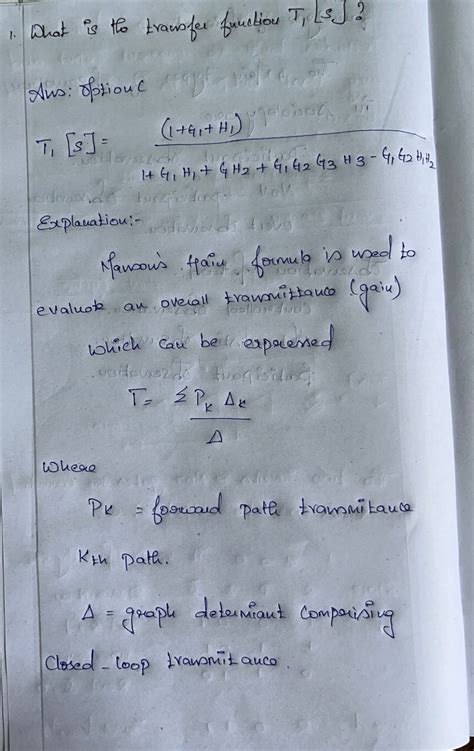 1. What is the transfer function T₁[s]?
Ans: Option C
T₁[s] = (1+G₁+H₁)
1+G₁H₁+GH₂+G₁G₂G₃H₃-G₁G₂H₁H₂
Explanation:-
Manson's Gain formula is used to
evaluate an overall transmittance (gain)
which can be expressed
T = Σ Pₖ Δₖ
Δ
Where
Pk = forward path transmitance
Kth path.
Δ = graph determiant comprising
Closed-loop transmitance.